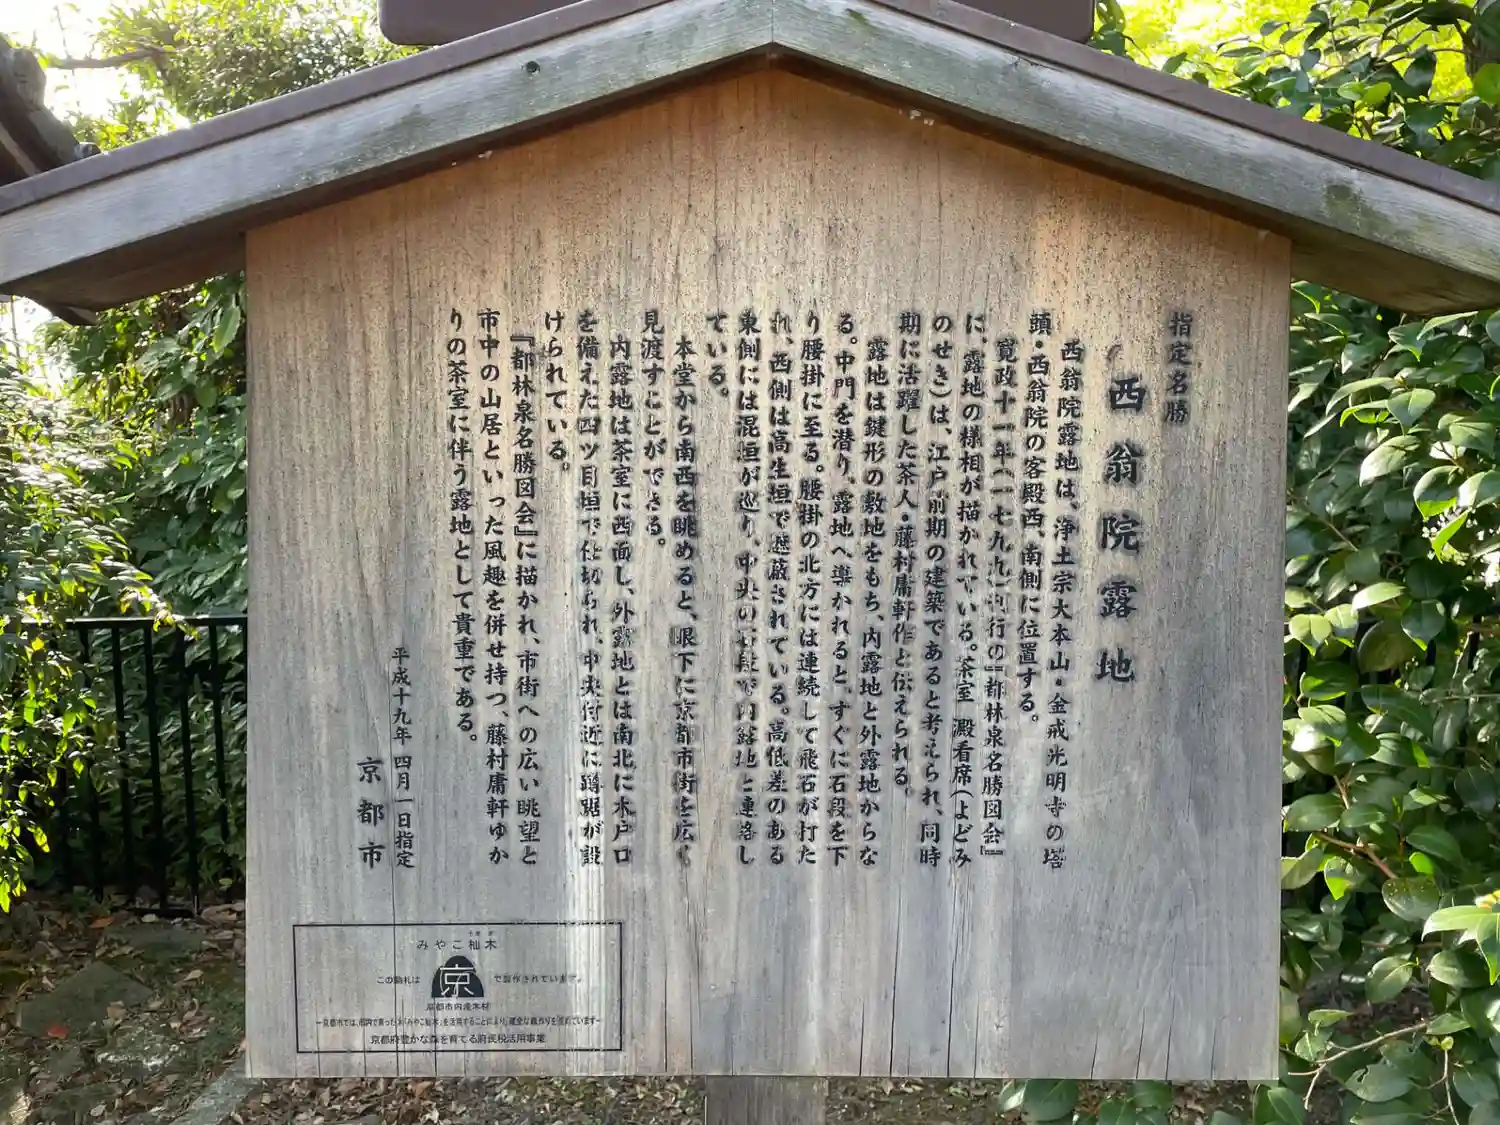 指定名勝
西翁院露地
西翁院露地は、浄土宗大本山・金戒光明寺の塔
頭・西翁院の客殿西、南側に位置する。
寛政十一年(一七九九)刊行の『都林泉名勝図会』
に、露地の様相が描かれている。茶室 澱看席(よどみ
のせき)は、江戸前期の建築であると考えられ、同時
期に活躍した茶人・藤村庸軒作と伝えられる。
露地は鍵形の敷地をもち、内露地と外露地からな
る。中門を潜り、露地へ導かれると、すぐに石段を下
り腰掛に至る。腰掛の北方には連続して飛石が打た
れ、西側は高生垣で遮蔽されている。高低差のある
東側には混垣が巡り、中央の石段で内露地と連絡し
ている。
本堂から南西を眺めると、眼下に京都市街を広く
見渡すことができる。
内露地は茶室に西面し、外露地とは南北に木戸口
を備えた四ツ目垣で仕切られ、中央付近に蹲踞が設
けられている。
『都林泉名勝図会』に描かれ、市街への広い眺望と
市中の山居といった風趣を併せ持つ、藤村庸軒ゆか
りの茶室に伴う露地として貴重である。
平成十九年四月一日指定
京都市
みやこ杣木
この駒札は
京
で製作されています。
京都市内産木材
京都府豊かな森を育てる府民税活用事業